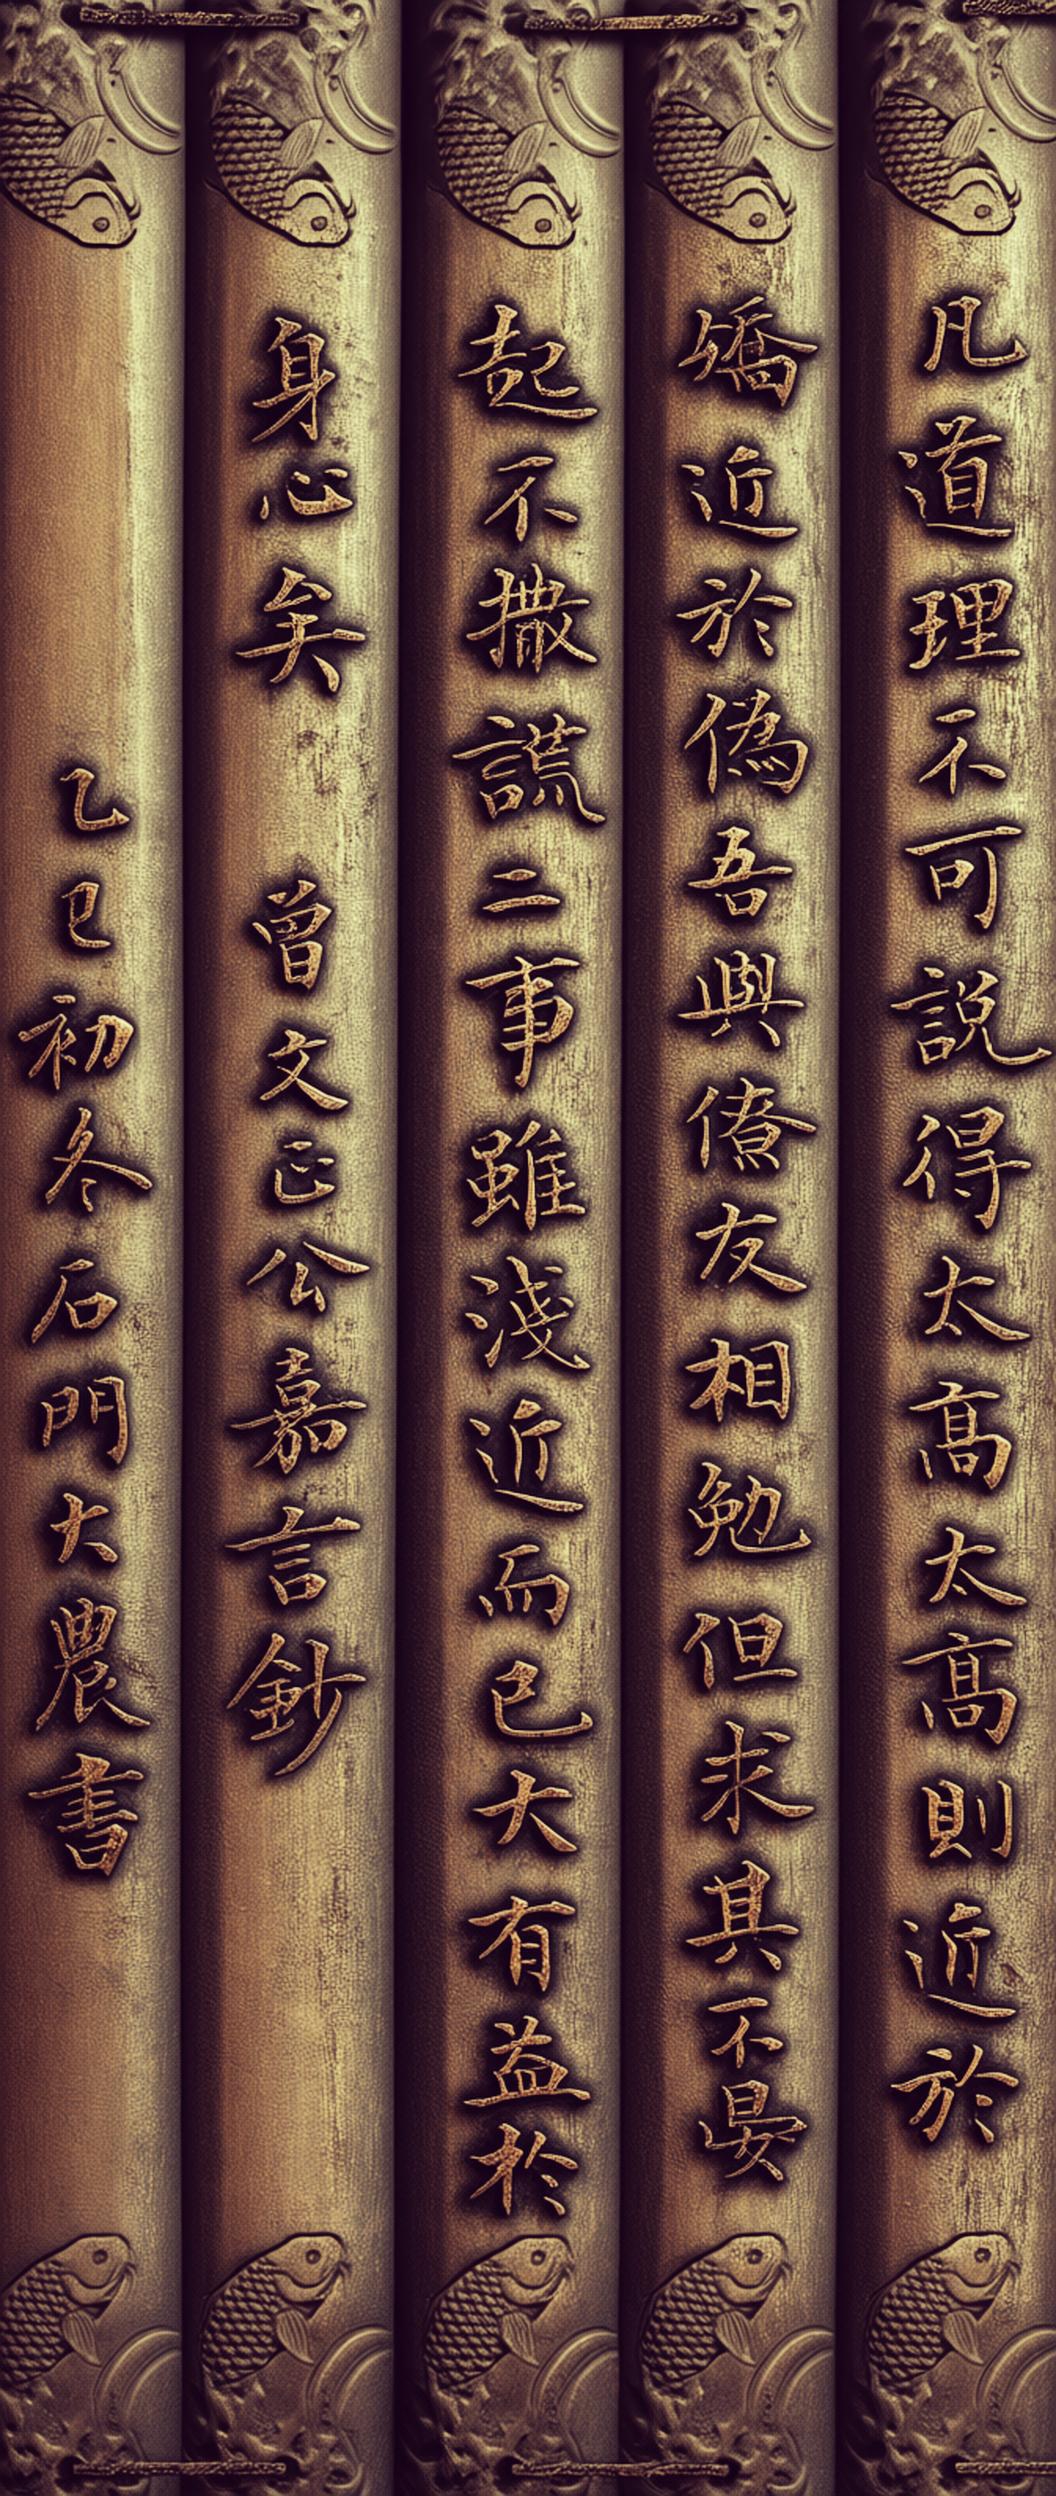 凡道理不可説得太高太高則近於
矯近於偽吾與僚友相勉但求其不晏
起不撒謊二事雖淺近而已大有益於
身心矣 曾文正公嘉言鈔
乙巳初冬石門大農書